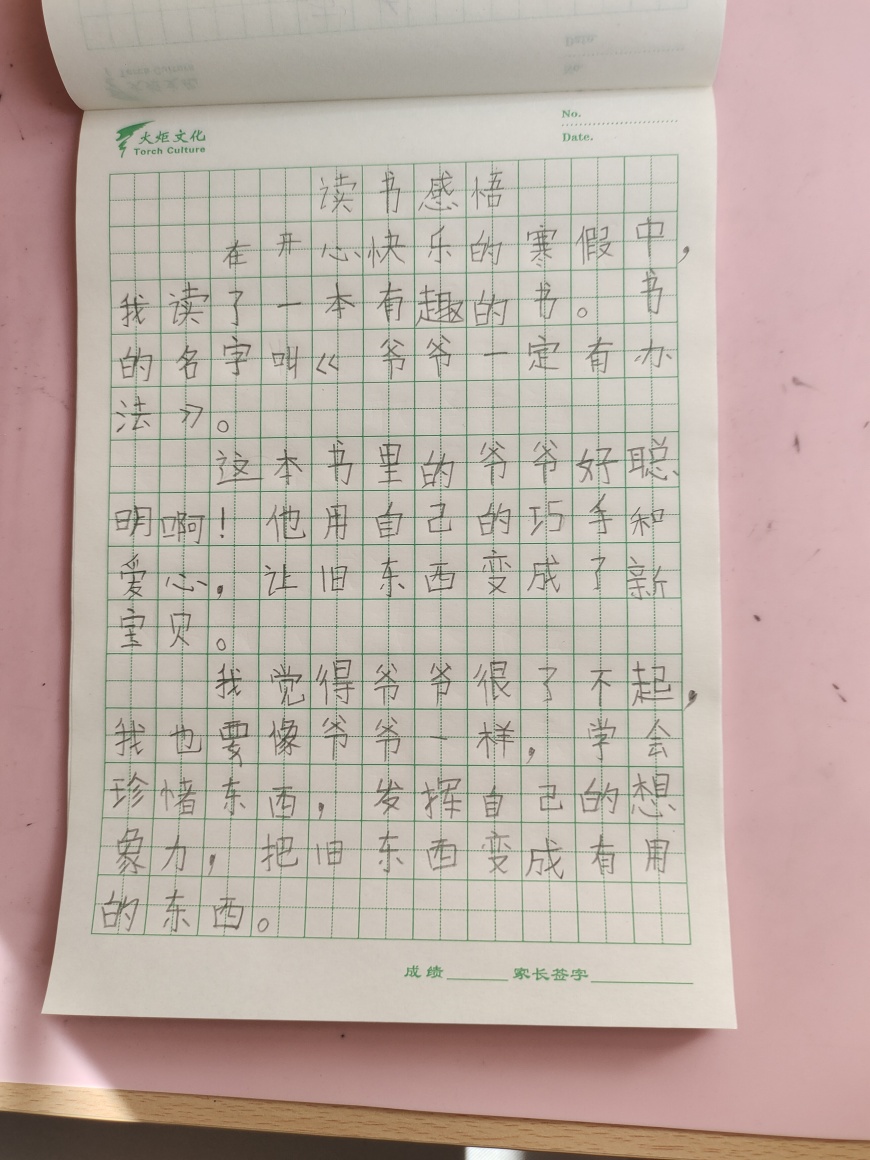 No.
Date.
火炬文化
Torch Culture
读书感悟
在开心快乐的寒假中，
我读了一本有趣的书。书
的名字叫《爷爷一定有办
法》。
这本书里的爷爷好聪
明啊！他用自己的巧手和
爱心，让旧东西变成了新
宝贝。
我觉得爷爷很了不起，
我也要像爷爷一样，学会
珍惜东西，发挥自己的想
象力，把旧东西变成有用
的东西。
成绩 家长签字